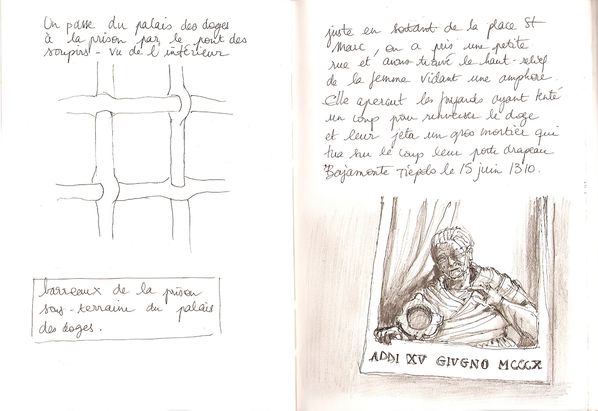 Un passe du palais des doges
à la prison par le pont des
soupirs - vu de l'intérieur
barreaux de la prison
sous-terraine du palais
des doges.
juste en sortant de la place St
Marc, on a pris une petite
rue et avons trouvé le haut-relief
de la femme vidant une amphore.
Elle aperçut les fuyards ayant tenté
un coup pour renverser le doge
et leur jeta un gros mortier qui
tua sur le coup leur porte drapeau
Bajamonte Tiepolo le 15 juin 1310.
ADDI XV GIVGNO MCCCX